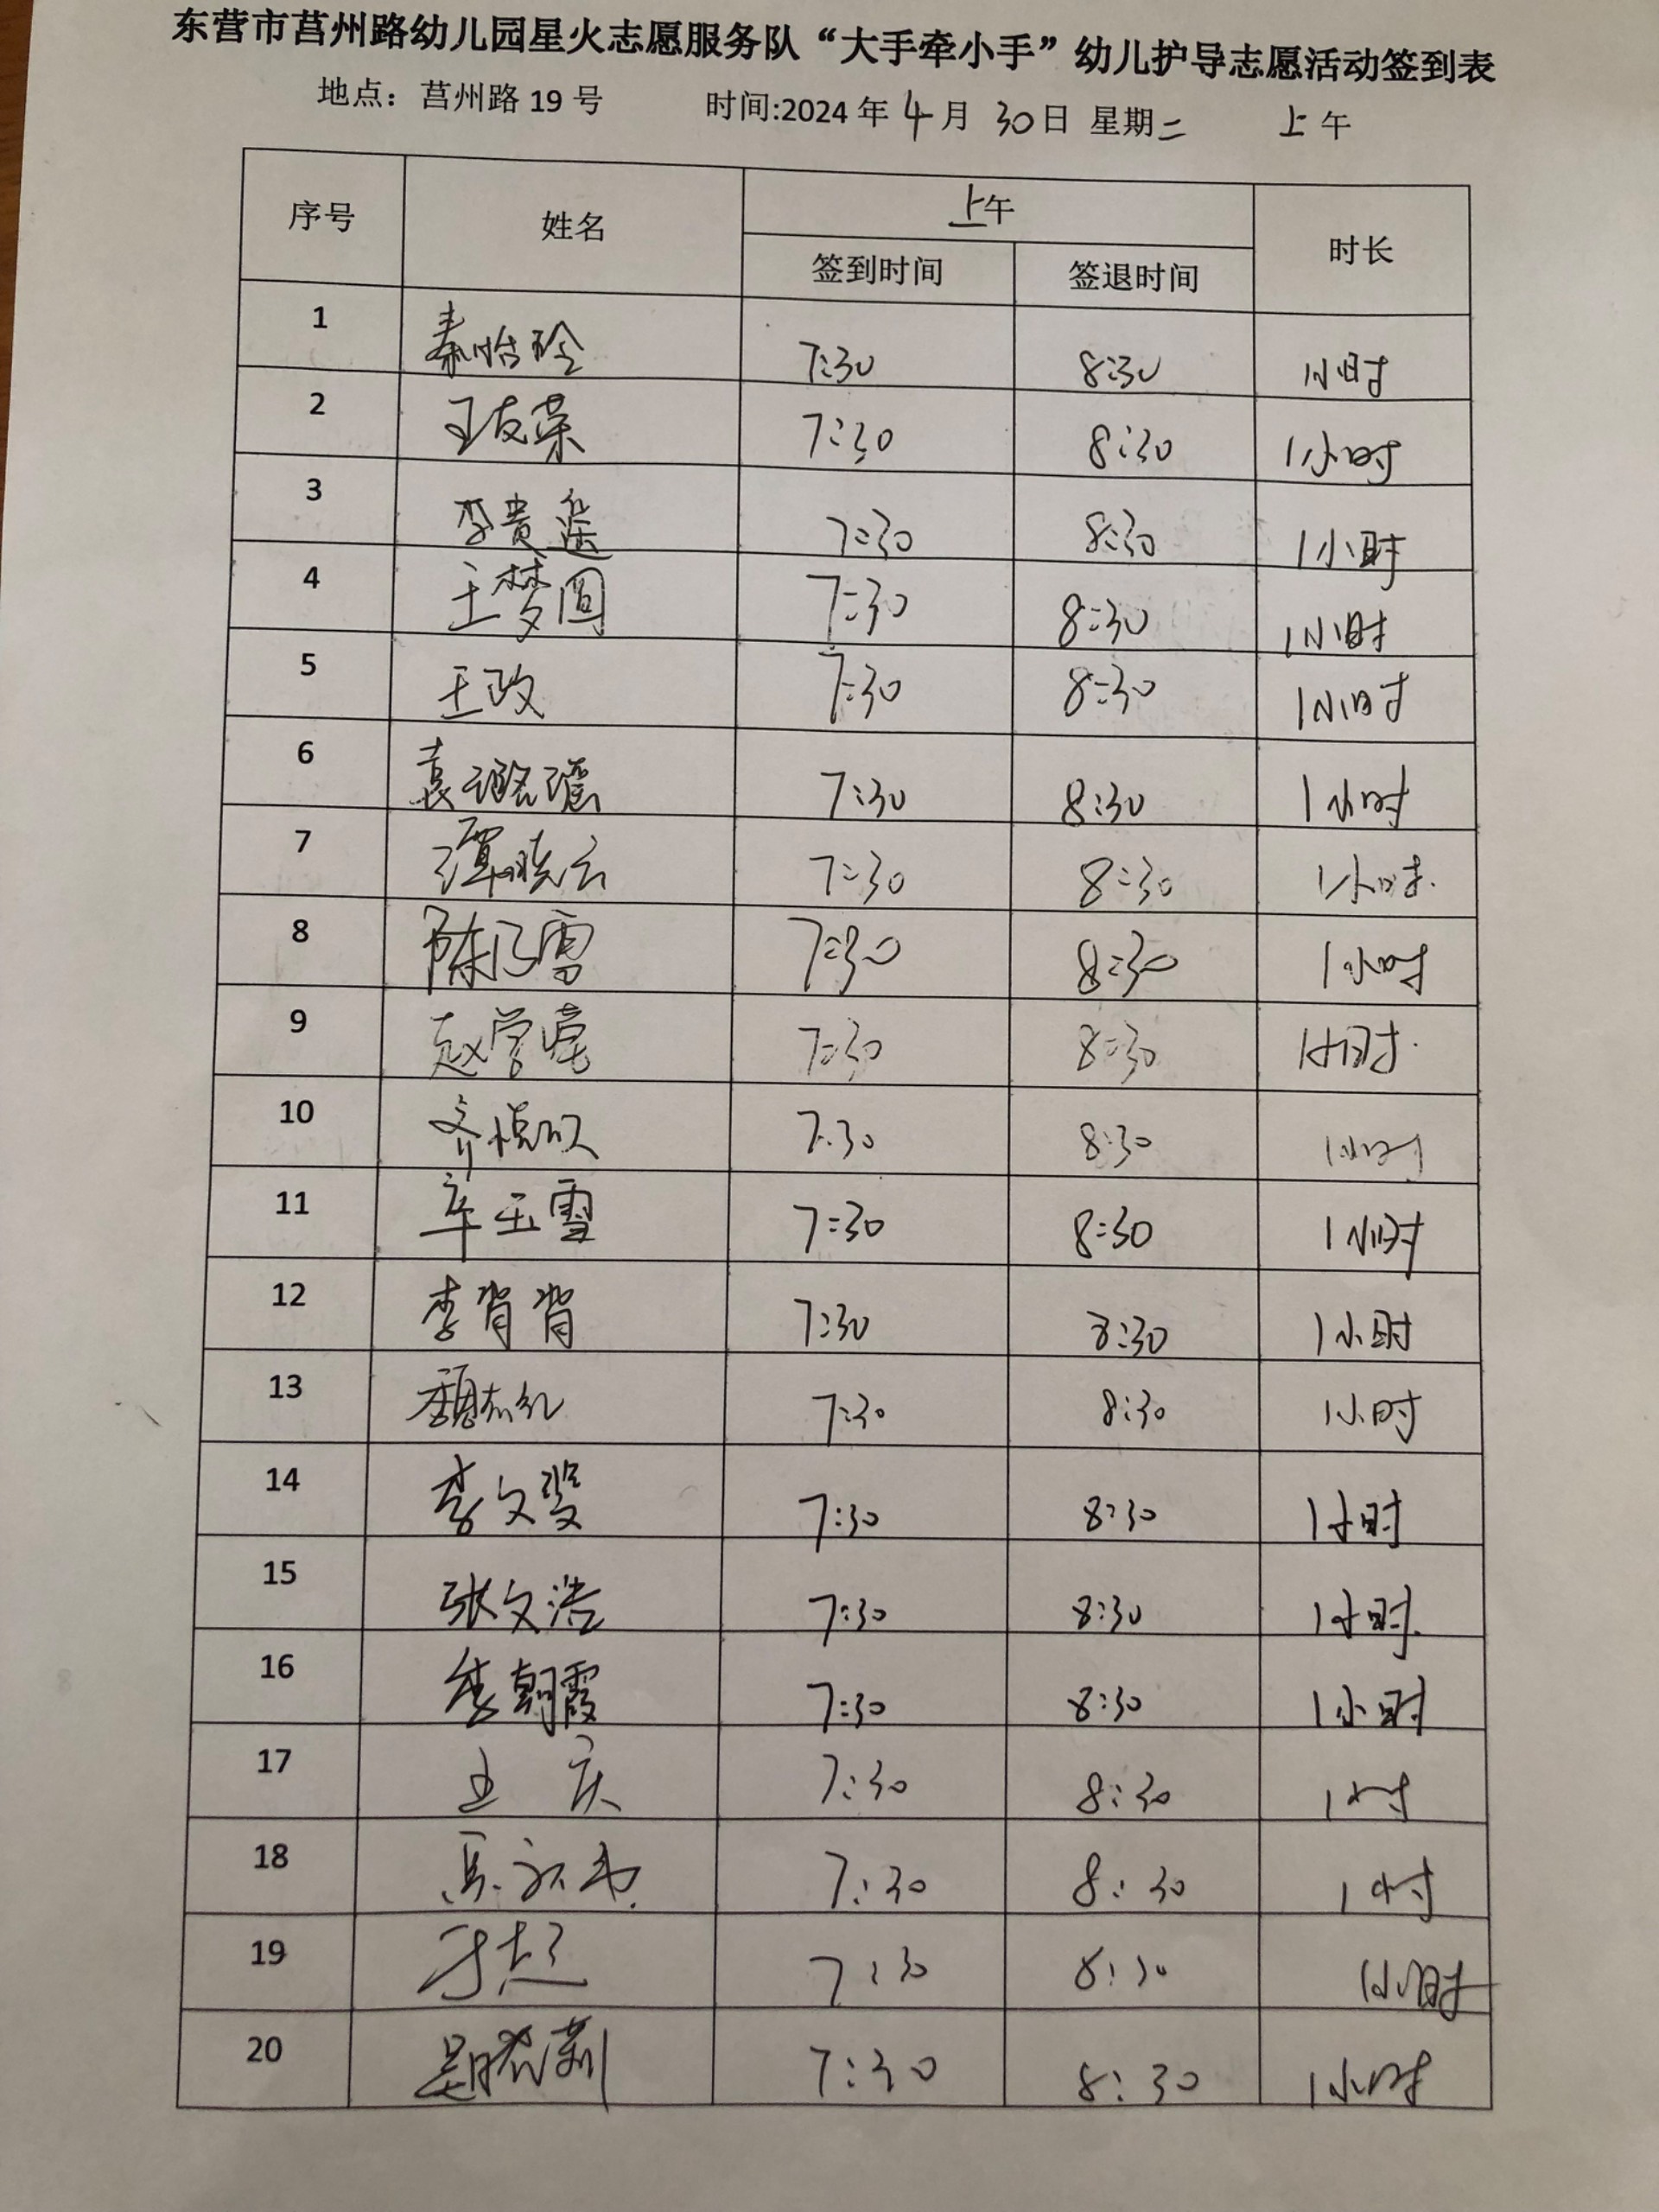 东营市莒州路幼儿园星火志愿服务队“大手牵小手”幼儿护导志愿活动签到表
地点：莒州路 19 号 时间:2024 年 4 月 30 日 星期二 上午
序号 姓名 上午 时长
签到时间 签退时间
1 秦怡玲 7:30 8:30 1小时
2 王友荣 7:30 8:30 1小时
3 李贵遥 7:30 8:30 1小时
4 王梦圆 7:30 8:30 1小时
5 王政 7:30 8:30 1小时
6 袁璐瑶 7:30 8:30 1小时
7 谭晓云 7:30 8:30 1小时.
8 陈乃雪 7:30 8:30 1小时
9 赵学 7:30 8:30 1小时.
10 齐 7:30 8:30 1小时
11 辛玉雪 7:30 8:30 1小时
12 李肖肖 7:30 8:30 1小时
13 魏 7:30 8:30 1小时
14 李文 7:30 8:30 1小时
15 张文浩 7:30 8:30 1小时.
16 李朝霞 7:30 8:30 1小时
17 王庆 7:30 8:30 1小时
18 7:30 8:30 1小时
19 于超 7:30 8:30 1小时
20 7:30 8:30 1小时